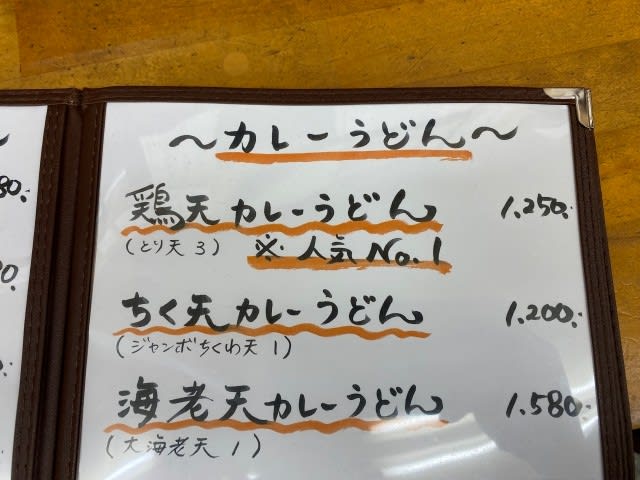 〜カレーうどん〜
鶏天カレーうどん 1,250.-
(とり天3) ※人気No.1
ちく天カレーうどん 1,200.-
(ジャンボちくわ天1)
海老天カレーうどん 1,580.-
(大海老天1)